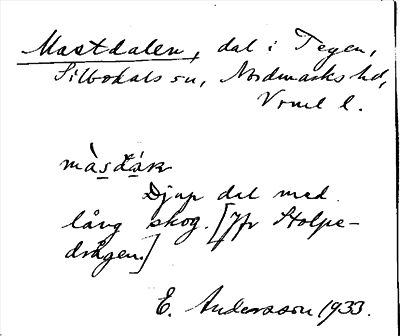 Mastdalen, dal i Tegen,
Silbodals sn, Nordmarks hd,
Vrml l.
Djup dal med
lång skog. [Jfr Stolpe-
drågen.]
E. Andersson 1933.